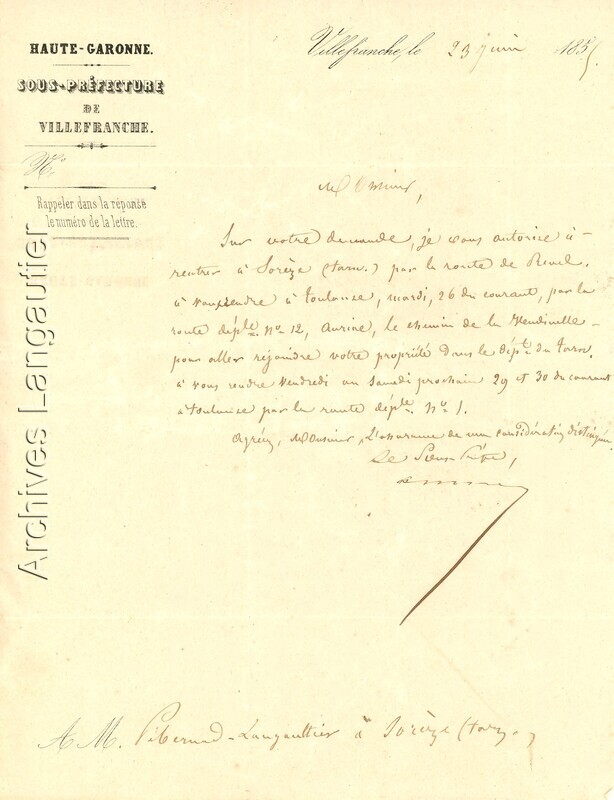 HAUTE-GARONNE.
SOUS-PRÉFECTURE
DE
VILLEFRANCHE.
N°
Rappeler dans la réponse
le numéro de la lettre.
Villefranche, le 23 juin 1855.
Monsieur,
Sur votre demande, je vous autorise à
rentrer à Sorèze (Tarn.) par la route de Revel.
à vous rendre à Toulouse, mardi, 26 du courant, par la
route déple. No 12, Auriac, le chemin de la
pour aller rejoindre votre propriété dans le dépt. du Tarn.
à vous rendre vendredi ou samedi prochain 29 et 30 du courant
à Toulouse par la route déple. No 1.
Agréez, Monsieur, l'assurance de ma considération distinguée
Le Sous Préfet,
A M. Pibernad-Langautier à Sorèze (Tarn.)
Archives Langautier